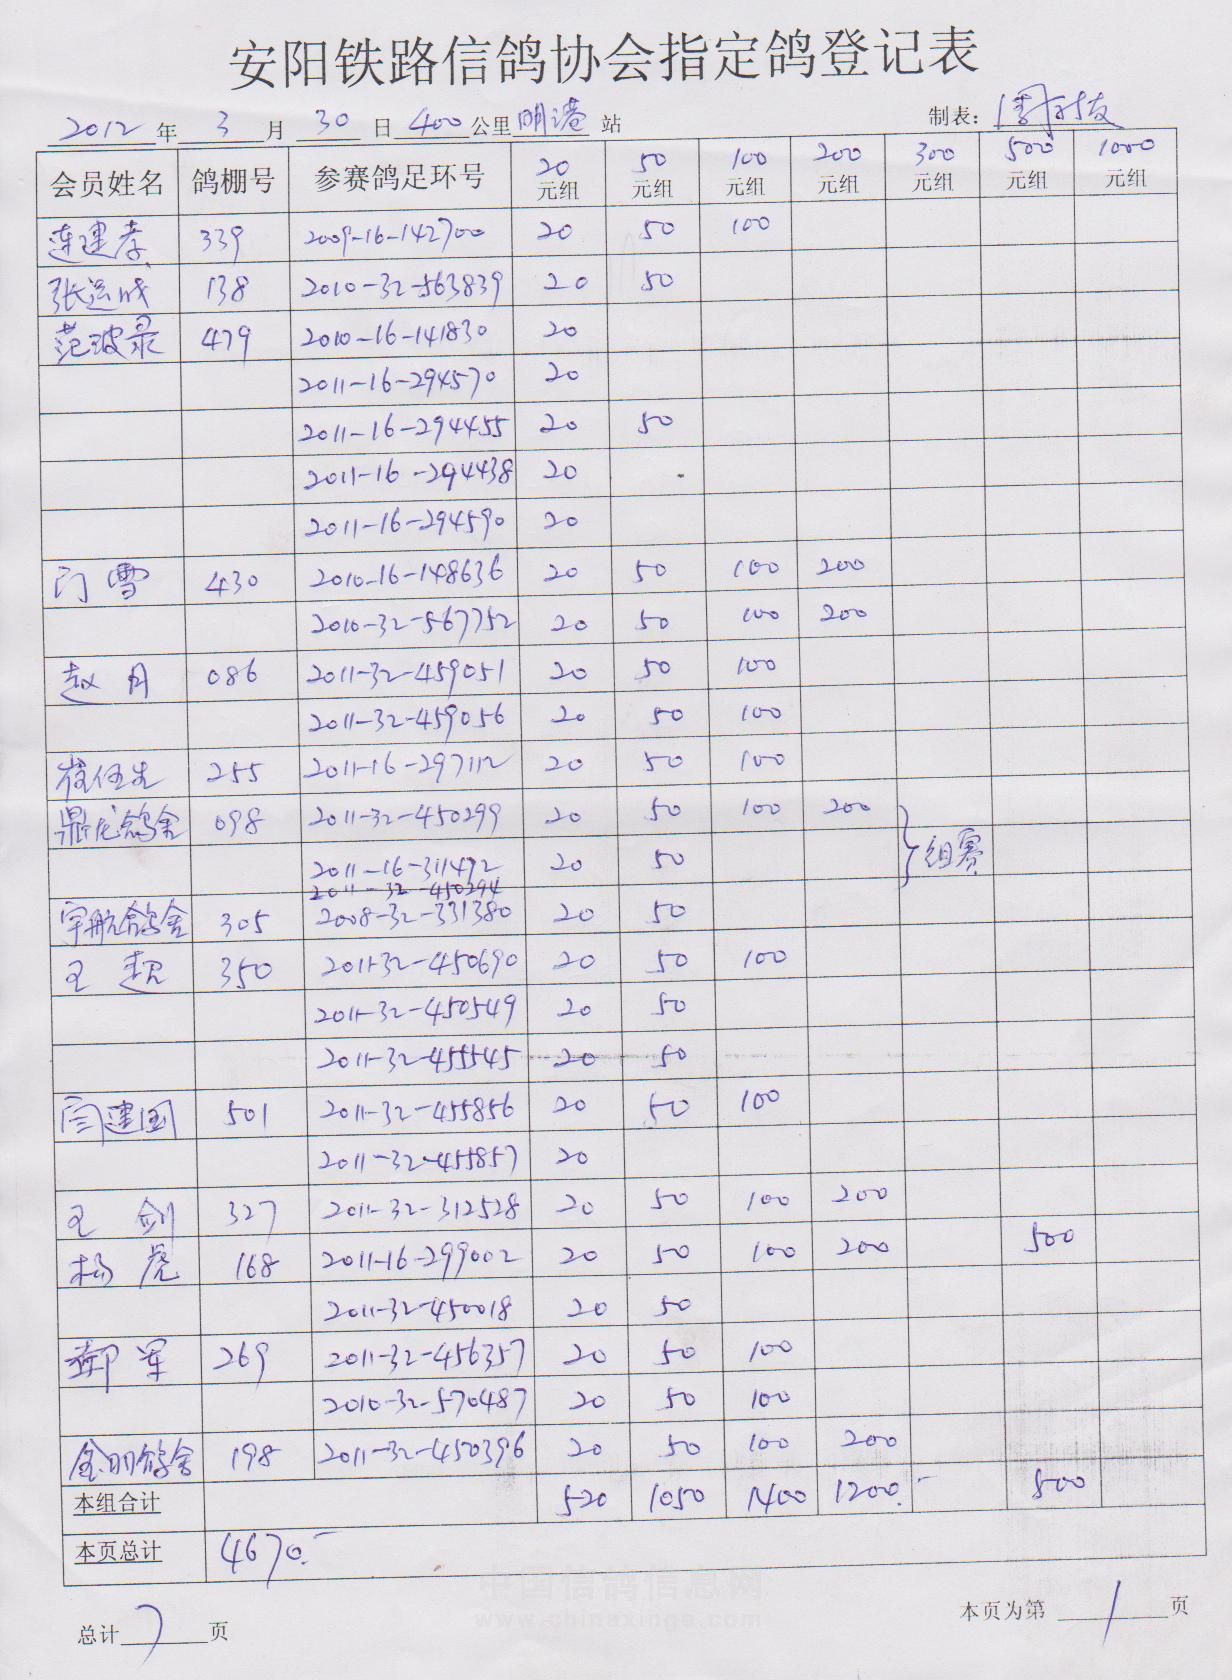 安阳铁路信鸽协会指定鸽登记表
2012 年 3 月 30 日 400 公里 明港 站 制表:
会员姓名 鸽棚号 参赛鸽足环号 20元组 50元组 100元组 200元组 300元组 500元组 1000元组
连建孝 339 2009-16-142700 20 50 100
张运成 138 2010-32-563839 20 50
范玻录 479 2010-16-141830 20
2011-16-294570 20
2011-16-294455 20 50
2011-16-294438 20
2011-16-294590 20
门雪 430 2010-16-148636 20 50 100 200
2010-32-567752 20 50 100 200
赵月 086 2011-32-459051 20 50 100
2011-32-459056 20 50 100
崔任生 255 2011-16-297112 20 50 100
鼎龙鸽舍 098 2011-32-450299 20 50 100 200
2011-16-311472 20 50 组赛
2011-32-450294
宇航鸽舍 305 2008-32-331380 20 50
王超 350 2011-32-450690 20 50 100
2011-32-450549 20 50
2011-32-455545 20 50
闫建国 501 2011-32-455856 20 50 100
2011-32-455857 20
王剑 327 2011-32-312528 20 50 100 200
杨虎 168 2011-16-299002 20 50 100 200 500
2011-32-450018 20 50
郝军 269 2011-32-456357 20 50 100
2010-32-570487 20 50 100
金明鸽舍 198 2011-32-450396 20 50 100 200
本组合计 520 1050 1400 1200.- 500
本页总计 4670.-
中国信鸽信息网
www.chinaxinge.com
总计 7 页 本页为第 1 页